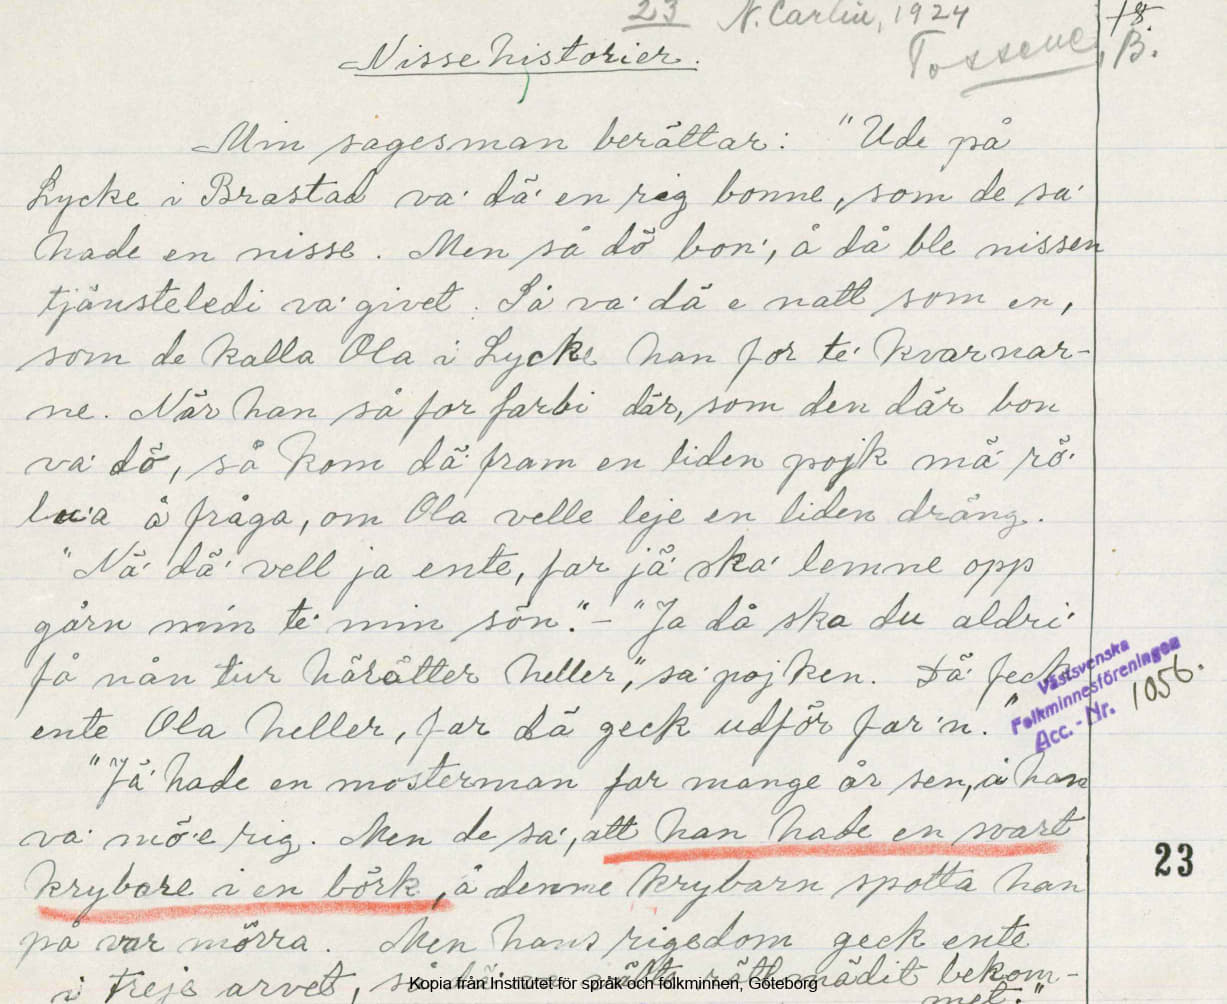 23 N. Carlin, 1924
18
Tossene, B.
Nissehistorier.
Min sagesman berättar: "Ude på
Lycke i Brastad va' dä' en rig bonne, som de sa'
hade en nisse. Men så dö bon', å då ble nissen
tjänsteledi va' givet. Så va' dä e natt som en,
som de kalla Ola i Lycke han for te' kvarnar-
ne. När han så for farbi där, som den där bon
va' dö, så kom dä' fram en liden pojk mä' rö'
lu'a å fråga, om Ola velle leje en liden dräng.
"Nä' dä' vell ja ente, far jä' ska' lemne opp
gårn min te' min sön." - "Ja då ska du aldri'
få nån tur härätter heller", sa' pojken. Dä' feck
ente Ola heller, far dä geck udför far'n."
"Jä' hade en mosterman far mange år sen, å han
va' mö'e rig. Men de sa', att han hade en svart
krybare i en börk, å denne krybarn spotta han
på var mörra. Men hans rigedom geck ente
i treje arvet, så rättmädit bekom-
met."
Västsvenska
Folkminnesföreningen
Acc.-Nr. 1056.
23
Kopia från Institutet för språk och folkminnen, Göteborg